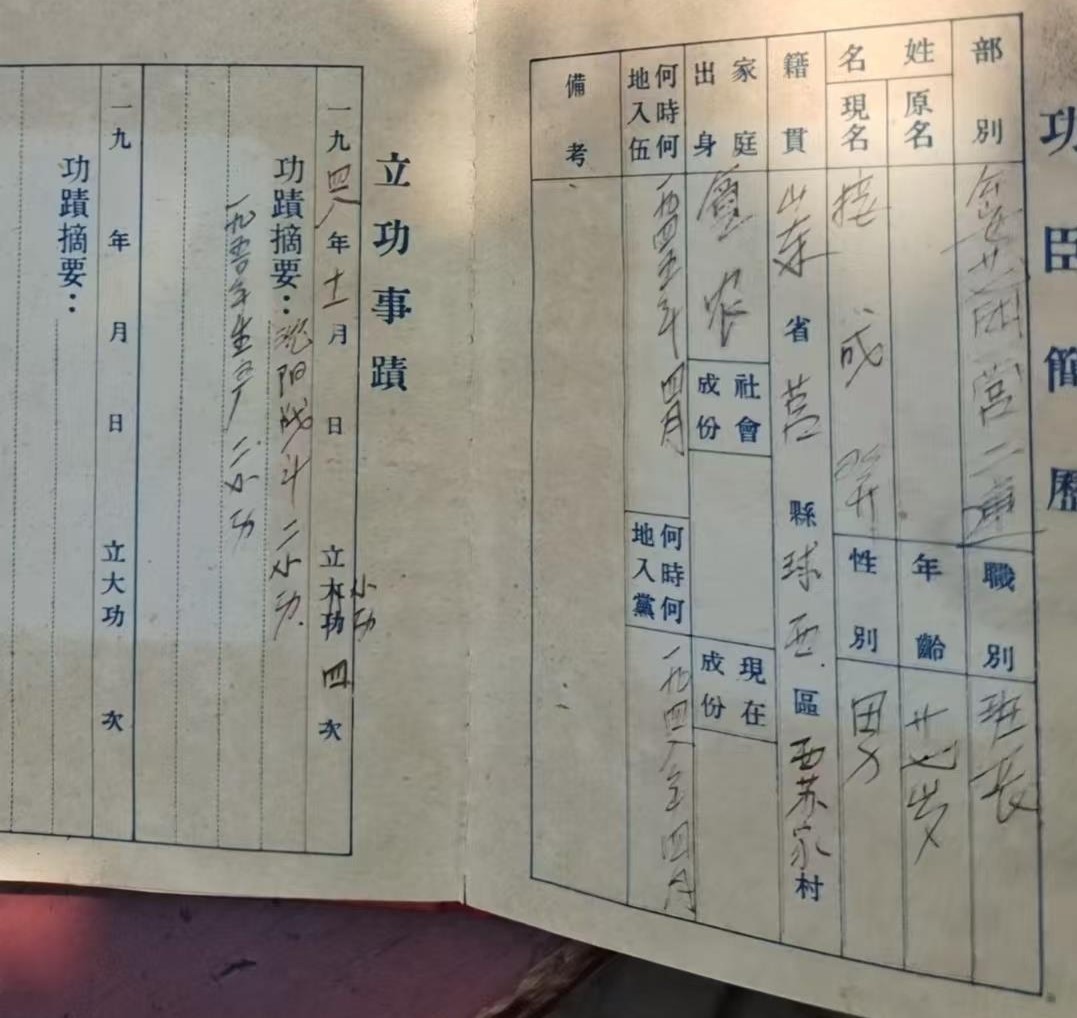 功臣簡歷
部別
營二連
職別 班長
姓名
原名
年齡 廿七岁
現名 成
性別 男
籍貫 山东省莒縣球西區西苏家村
家庭出身 貧农
社會成份
現在成份
何時何地入伍 一九四五年四月
何時何地入黨 一九四八年四月
備考
立功事蹟
一九四八年十一月 日 立大功四次
小功
功蹟摘要：沈阳战斗二小功
一九五〇年生产二小功
一九 年 月 日 立大功 次
功蹟摘要：